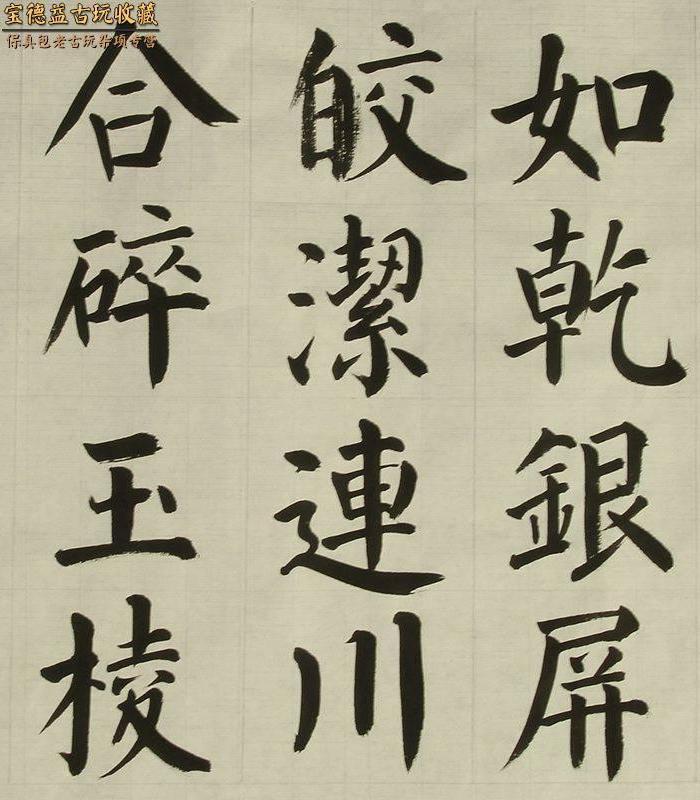 宝德益古玩收藏
保真包老古玩杂项专营
如乾銀屏
皎潔連川
合碎玉棱